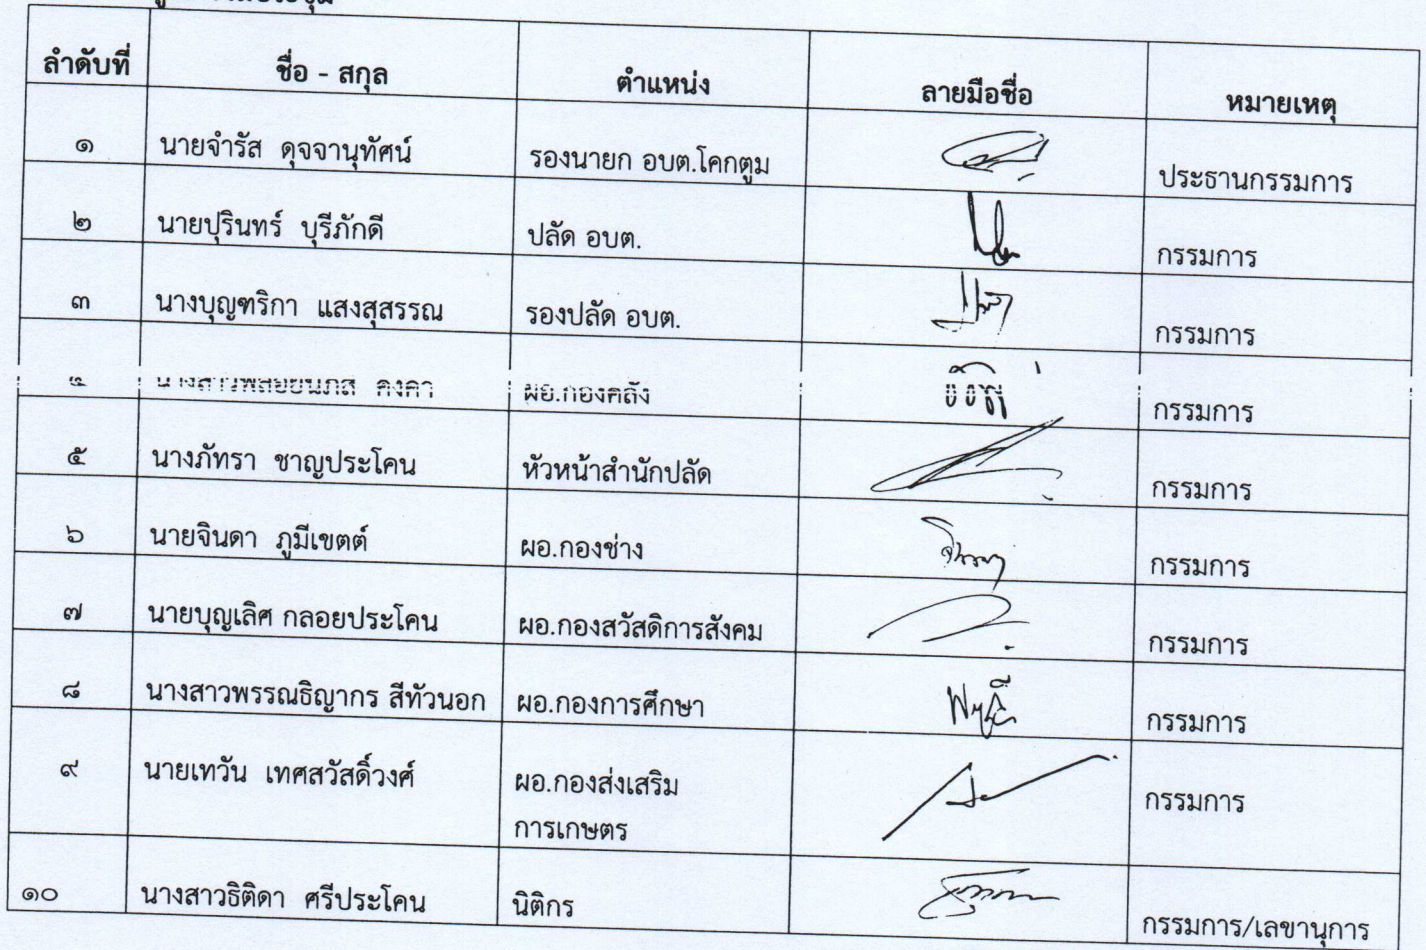 ลำดับที่ ชื่อ - สกุล ตำแหน่ง ลายมือชื่อ หมายเหตุ
๑ นายจำรัส ดุจจานุทัศน์ รองนายก อบต.โคกตูม ประธานกรรมการ
๒ นายปุรินทร์ บุรีภักดี ปลัด อบต. กรรมการ
๓ นางบุญฑริกา แสงสุสรรณ รองปลัด อบต. กรรมการ
๔ คงคา ผอ.กองคลัง กรรมการ
๕ นางภัทรา ชาญประโคน หัวหน้าสำนักปลัด กรรมการ
๖ นายจินดา ภูมีเขตต์ ผอ.กองช่าง กรรมการ
๗ นายบุญเลิศ กลอยประโคน ผอ.กองสวัสดิการสังคม กรรมการ
๘ นางสาวพรรณธิญากร สีทัวนอก ผอ.กองการศึกษา กรรมการ
๙ นายเทวัน เทศสวัสดิ์วงศ์ ผอ.กองส่งเสริม กรรมการ
การเกษตร
๑๐ นางสาวธิติดา ศรีประโคน นิติกร กรรมการ/เลขานุการ